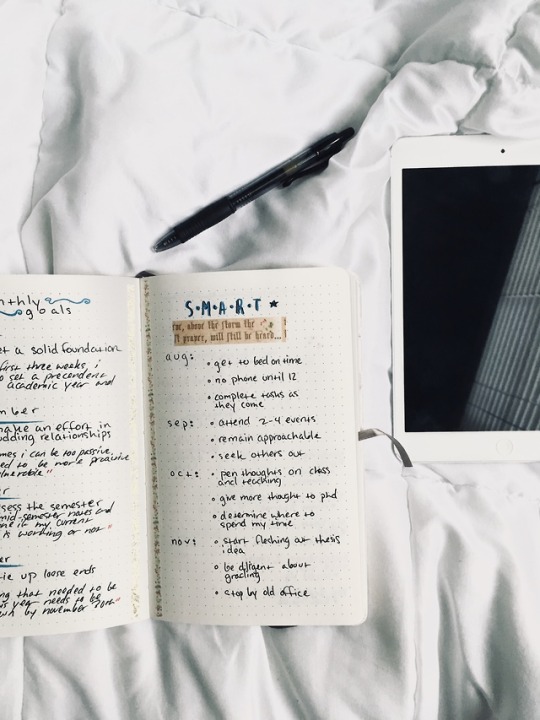 nthly
goals
et a solid foundation
first three weeks, i
to set a precendent
academic year and
mber
make an effort in
udding relationships
mes i can be too passive,
ed to be more proactive
vulnerable"
er
sess the semester
mid-semester notes and
one in my current
is working or not "
er
tie up loose ends
ing that needed to be
is year needs to be
by november 20th"
S•M•A•R•T ★
rse, above the storm the
prayer, will still be heard...
aug:
• get to bed on time
• no phone until 12
• complete tasks as
they come
sep:
• attend 2-4 events
• remain approachable
• seek others out
oct:
• pen thoughts on class
and teaching
• give more thought to phd
• determine where to
spend my time
nov:
• start fleshing out thesis
idea
• be diligent about
grading
• stop by old office